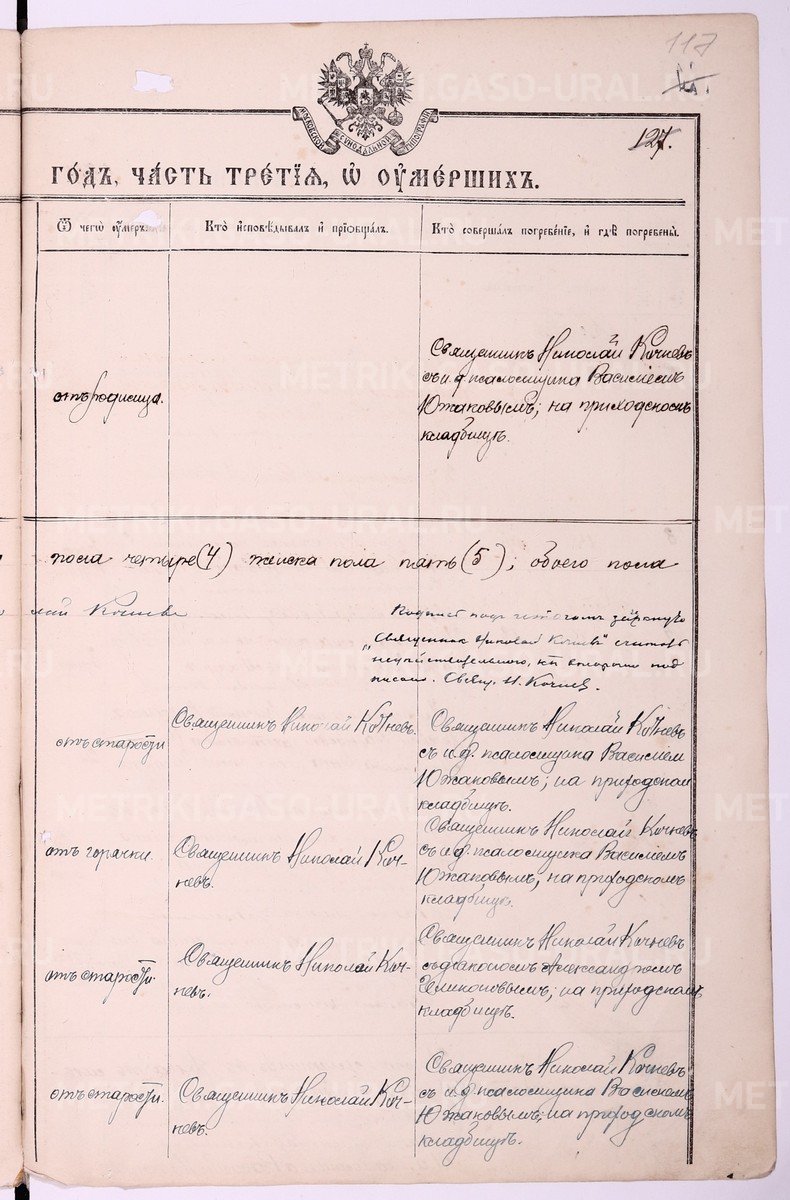 117
127.
МОСКОВСКОЙ СѴНОДАЛЬНОЙ ТИПОГРАФІИ
ГО́ДЪ, ЧА́СТЬ ТРЕ́ТІѦ, Ѡ҆ ОУ҆МЕ́РШИХЪ.
Ѿ чегѡ̀ оу҆́меръ.
Кто̀ и҆сповѣ́дывалъ и҆ прїѡбща́лъ.
Кто̀ соверша́лъ погребе́нїе, и҆ гдѣ̀ погребены̀.
отъ родимца.
Священникъ Николай Кочневъ
съ и. д. псаломщика Василіемъ
Южаковымъ; на приходскомъ
кладбищѣ.
пола четыре (4) женска пола пять (5); обоего пола
лай Кочневъ
"Священник Николай Кочневъ" считать
недѣйствительного,
писано. Свящ. Н. Кочнев.
отъ старости
Священникъ Николай Кочневъ.
Священникъ Николай Кочневъ
съ и. д. псаломщика Василіем
Южаковымъ; на приходском
кладбищѣ.
отъ горячки.
Священникъ Николай Коч-
невъ.
Священникъ Николай Кочневъ
съ и. д. псаломщика Василіемъ
Южаковымъ, на приходскомъ
кладбищѣ.
отъ старости.
Священникъ Николай Коч-
невъ.
Священникъ Николай Кочневъ
съ діакономъ Александромъ
на приходском
кладбищѣ.
отъ старости.
Священникъ Николай Коч-
невъ.
Священникъ Николай Кочневъ
съ и. д. псаломщика Василіемъ
Южаковымъ; на приходскомъ
кладбищѣ.
METRIKI.GASO-URAL.RU